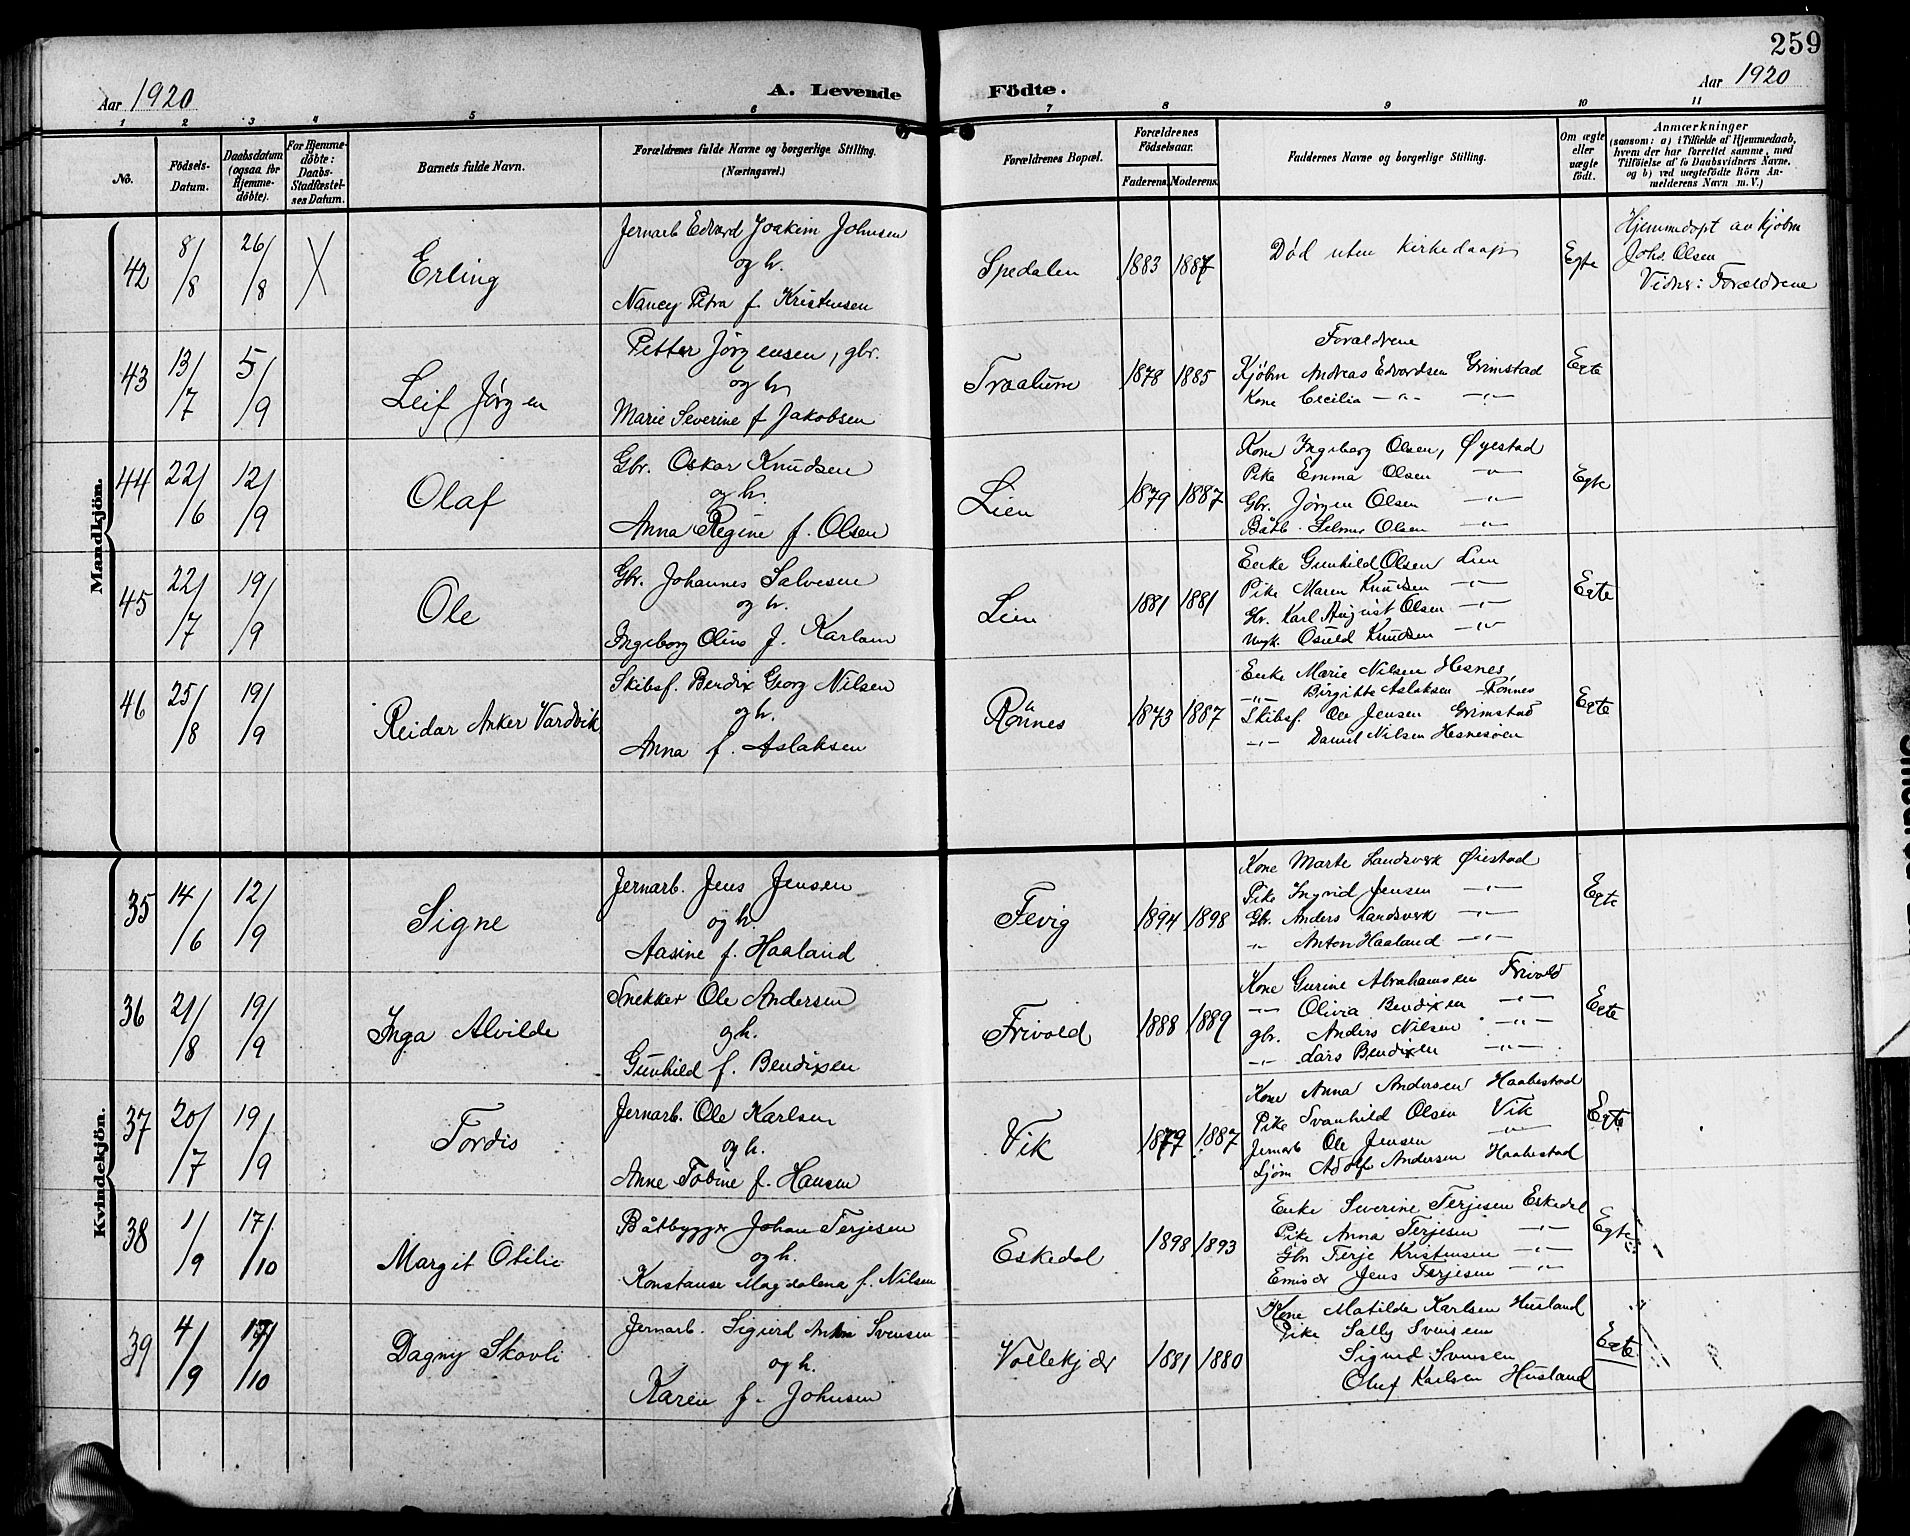 259
Aar 1920
A. Levende Födte.
Aar 1920
1 2 3 4 5 6 7 8 9 10 11
No.
Födsels-Datum.
Daabsdatum (ogsaa for Hjemmedöbte).
For Hjemmedöbte: Daabs-Stadfæstelses Datum.
Barnets fulde Navn.
Forældrenes fulde Navne og borgerlige Stilling. (Næringsvei.)
Forældrenes Bopæl.
Forældrenes Födselsaar.
Faderens. Moderens.
Faddernes Navne og borgerlige Stilling.
Om ægte eller uægte födt.
Anmærkninger
(saasom: a) i Tilfælde af Hjemmedaab, hvem der har forrettet samme, med Tilföielse af to Daabsvidners Navne, og b) ved uægtefödte Börn Anmelderens Navn m. V.)
Mandkjön.
42 8/8 26/8 X Erling
Jernarb Edvard Joakim Johnsen
og h.
Nancy Petra f. Kristensen
Spedalen 1883 1887
Död uten kirkedaap
Egte
Hjemmedøpt av kjöbm
Johs. Olsen
Vidner: Forældrene
43 13/7 5/9 Leif Jørgen
Petter Jörgensen, gbr.
og h
Marie Severine f Jakobsen
Traalum 1878 1885
Forældrene
Kjöbm Andreas Edvardsen Grimstad
Kone Cecilia -"- -"-
Egte
44 22/6 12/9 Olaf
Gbr. Oskar Knudsen
og h.
Anna Regine f. Olsen
Lien 1879 1887
Kone Ingeborg Olsen, Øyestad
Pike Emma Olsen -"-
Gbr. Jørgen Olsen -"-
Båtb. Selmer Olsen -"-
Egte
45 22/7 19/9 Ole
Gbr. Johannes Salvesen
og h.
Ingeborg Oline f. Karlsen
Lien 1881 1881
Enke Gunhild Olsen Lien
Pike Maren Knudsen -"-
Gbr. Karl August Olsen -"-
Ungk. Osuld Knudsen -"-
Egte
46 25/8 19/9 Reidar Anker Vardvik
Skibsf. Berdix Georg Nilsen
og h.
Anna f. Aslaksen
Rönnes 1873 1887
Enke Marie Nilsen Hesnes
-"- Birgitte Aslaksen Rönnes
Skibsf. Ole Jensen Grimstad
-"- Daniel Nilsen Hesnesöen
Egte
Kvindekjön.
35 14/6 12/9 Signe
Jernarb. Jens Jensen
og h.
Aasine f. Haaland
Fevig 1894 1898
Kone Marte Landsverk Øiestad
Pike Ingrid Jensen -"-
Gbr. Anders Landsverk -"-
-"- Anton Haaland -"-
Egte
36 21/8 19/9 Inga Alvilde
Snekker Ole Andersen
og h.
Gunhild f. Bendixen
Frivold 1888 1889
Kone Gurine Abrahamsen Frivold
-"- Olivia Bendixen -"-
gbr. Anders Nilsen -"-
-"- Lars Bendixen -"-
Egte
37 20/7 19/9 Tordis
Jernarb. Ole Karlsen
og h.
Anne Tobine f. Hansen
Vik 1879 1887
Kone Anna Andersen Haabestad
Pike Svanhild Olsen Vik
Jernarb Ole Jensen -"-
Sjöm Adolf Andersen Haabestad
Egte
38 1/9 17/10 Margit Otilie
Båtbygger Johan Terjesen
og h.
Konstanse Magdalena f. Nilsen
Eskedal 1898 1893
Enke Severine Terjesen Eskedal
Pike Anna Terjesen -"-
Gbr Terje Kristensen -"-
Jens Terjesen -"-
Egte
39 4/9 17/10 Dagny Skovli
Jernarb. Sigurd Anton Svensen
og h.
Karen f. Johnsen
Vollekjær 1881 1880
Kone Matilde Karlsen Husland
Pike Sally Svensen
Sigurd Svensen
Oluf Karlsen Husland
Egte